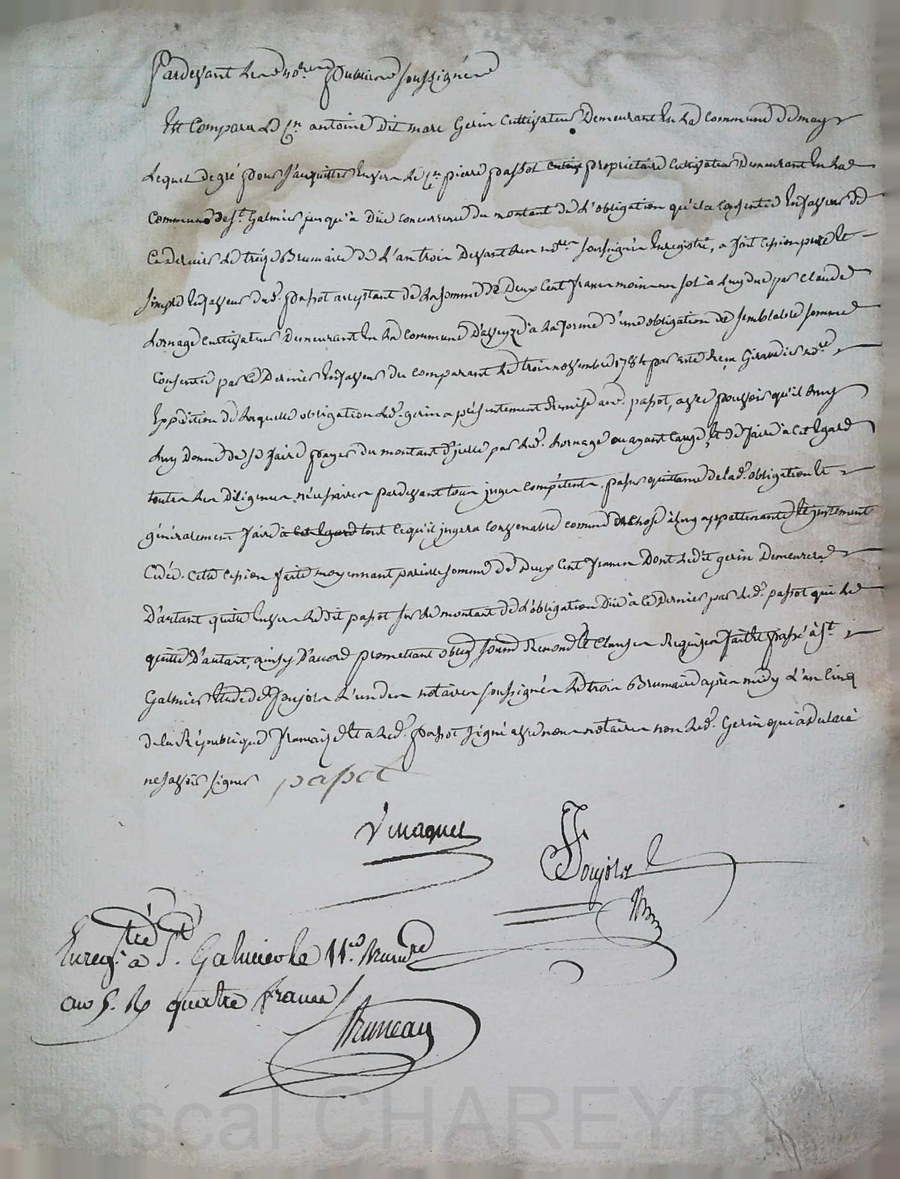 Pardevant les nores publics soussignés
Est comparu le Cn antoine dit marc Gerin cultivateur Demeurant en la commune de
Lequel de gré pour s'acquitter envers le Cn pierre papot propriétaire cultivateur Demeurant en la de
Commune de St. Galmier jusqu'à Düe concurrence du montant de L'obligation qu'il a consentie En faveur de
Ce dernier Le treize Brumaire de L'an trois Devant les nores soussignés Enregistré, a fait cession pure et
simple En faveur dud. papot acceptant de La somme de Deux Cent francs moins un sol à Luy due par Claude
Lornage cultivateur Demeurant En La Commune D'aveyze à La forme d'une obligation de semblable somme
Consentie par Ce Dernier En faveur du comparant Le trois novembre 1784 par acte reçu nore
Expédition de Laquelle obligation Led. gerin a présentement Remise aud. papot, avec pouvoir qu'il
Luy Donne de se faire payer du montant d'icelle par led. Lornage ou ayant cause, et de faire à cet égard
toutes Les Diligences nécessaires pardevant tous juges compétents, passer quittance de lad. obligation et
généralement faire à cet égard tout Ce qu'il jugera convenable comme de chose à Luy appartenante et justement
Cédée. Cette cession faite moyennant pareille somme de Deux Cent francs Dont Ledit gerin Demeurera
D'autant quitte Envers Ledit papot sur Le montant de L'obligation Düe à Ce Dernier par led. papot qui Le
quitte D'autant, ainsy D'accord promettant oblig soumd Renond et Clauses Requises fait et passé à St.
Galmier Etude de Soujols L'un des notaires soussignés Le trois Brumaire après midy L'an Cinq
de la République française Et a Led. papot signé avec nous notaires non Led. Gerin qui a déclaré
ne savoir signer papot
Vmagnet
Soujols
Nore
Enregtré à St. Galmier le 11 Brumre
an 5. R quatre francs
Bruneau
Pascal CHAREYR